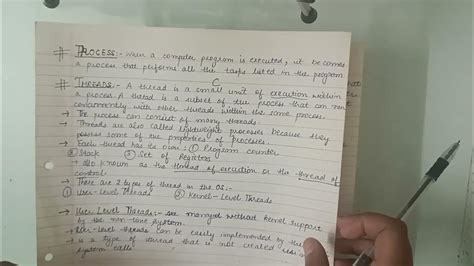 # PROCESS:- When a computer program is executed, it becomes
a process that performs all the tasks listed in the program
C
# THREADS:- A thread is a small unit of execution within
a process. A thread is a subset of the process that can run
concurrently with other threads within the same process.
→ The process can consist of many threads.
→ Threads are also called lightweight processes because they
possess some of the properties of processes.
→ Each thread has its own: ① Program counter
② Stack ③ Set of Registers
→ Also known as the thread of execution or the thread of
control.
→ There are 2 types of thread in the OS:-
① User-Level Threads ② Kernel-Level Threads
→ User Level Threads:- are managed without kernel support
by the run-time system.
→ User-level threads can be easily implemented by the
→ is a type of thread that is not created using
system calls